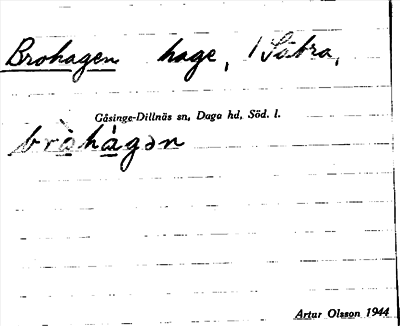 Brohagen hage, 1 Sätra,
Gåsinge-Dillnäs sn, Daga hd, Söd. l.
bròhàgən
Artur Olsson 1944